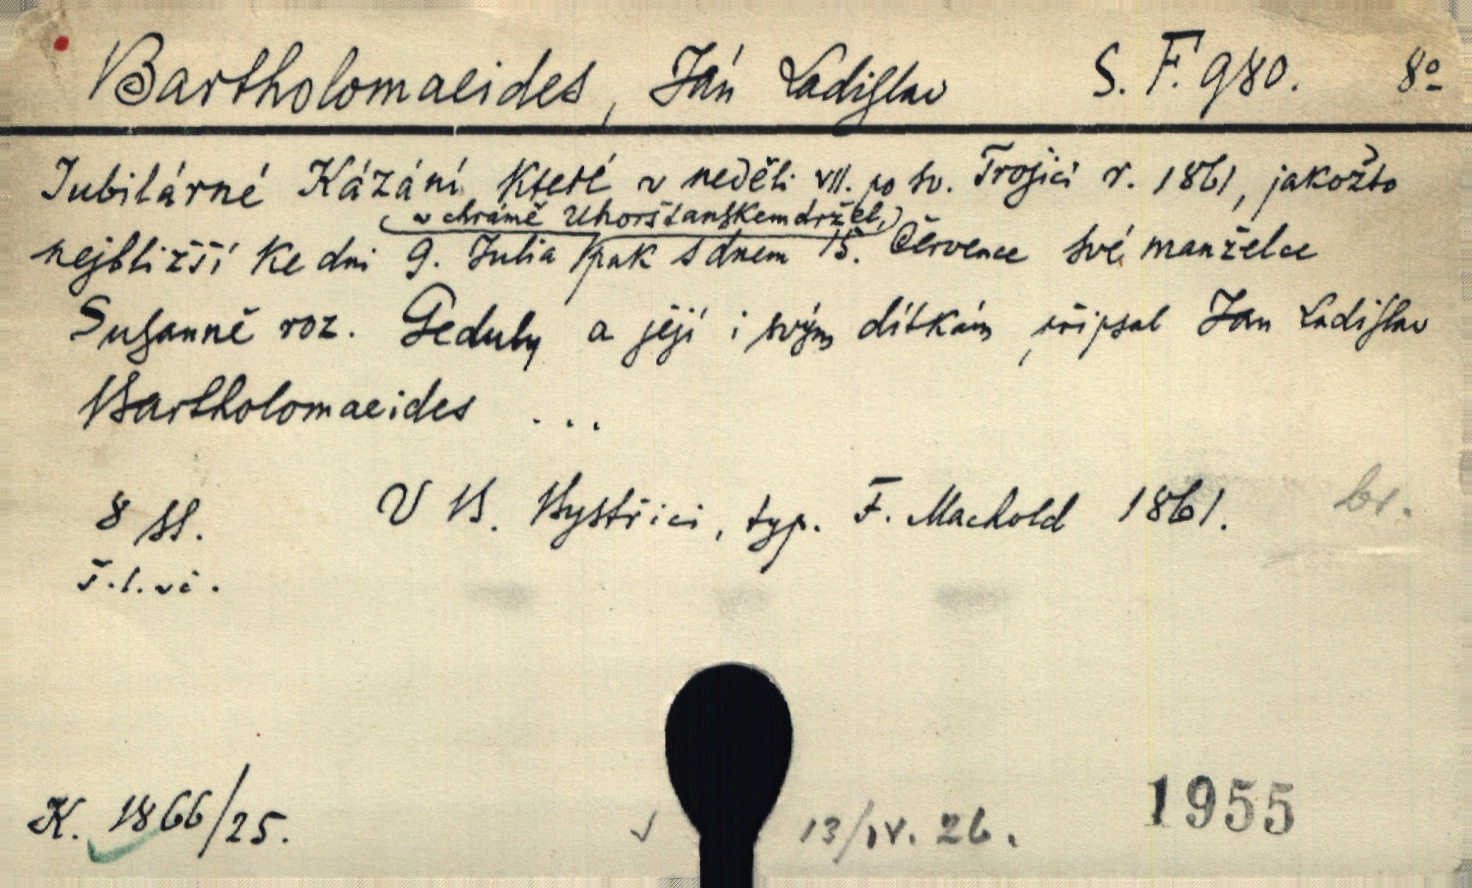 Bartholomaeides, Ján Ladislav S. F. 980. 8º
Jubilárné Kázání, které v neděli VII. po sv. Trojici r. 1861, jakožto
(v chrámě Uhoršťanskem držel,)
nejbližší ke dni 9. Julia pak s dnem 15. Července své manželce
Susanně roz. Geduly a její i svým dítkám připsal Jan Ladislav
Bartholomaeides ...
8 ss. V B. Bystřici, typ. F. Machold 1861. br.
T. l. vč.
K. 1866/25. 13/IV. 26. 1955